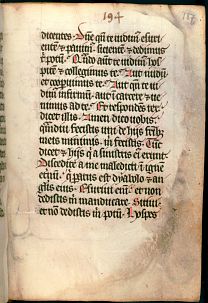 194
dicentes. Dñe qñ te vidim⁹ esuri
ente & pauim⁹. sicientē & dedimus
t' potū. Qñdo aut te vidim⁹ hospi
te & collegimus te. Aut nudū
et cooperuimus te. Aut qñ te vi
dim⁹ infirmū. aut ī carcere & ve
nimus ad te. Et respondēs rex
dicet illis. Amen dico vobis
quādiu fecistis uni de hijs frīb;
meis minimis. m̄ fecistis. Tūc
dicet & hijs q̄ a sinistris eī erunt
Discedite a me maledicti ī ignē
et'nū. qⁱ patus est dyabolo & an
gelis eius. Esurivi enī & non
dedistis m̄ manducare. Sitivi
et nō dedistis m̄ potū. Hospes